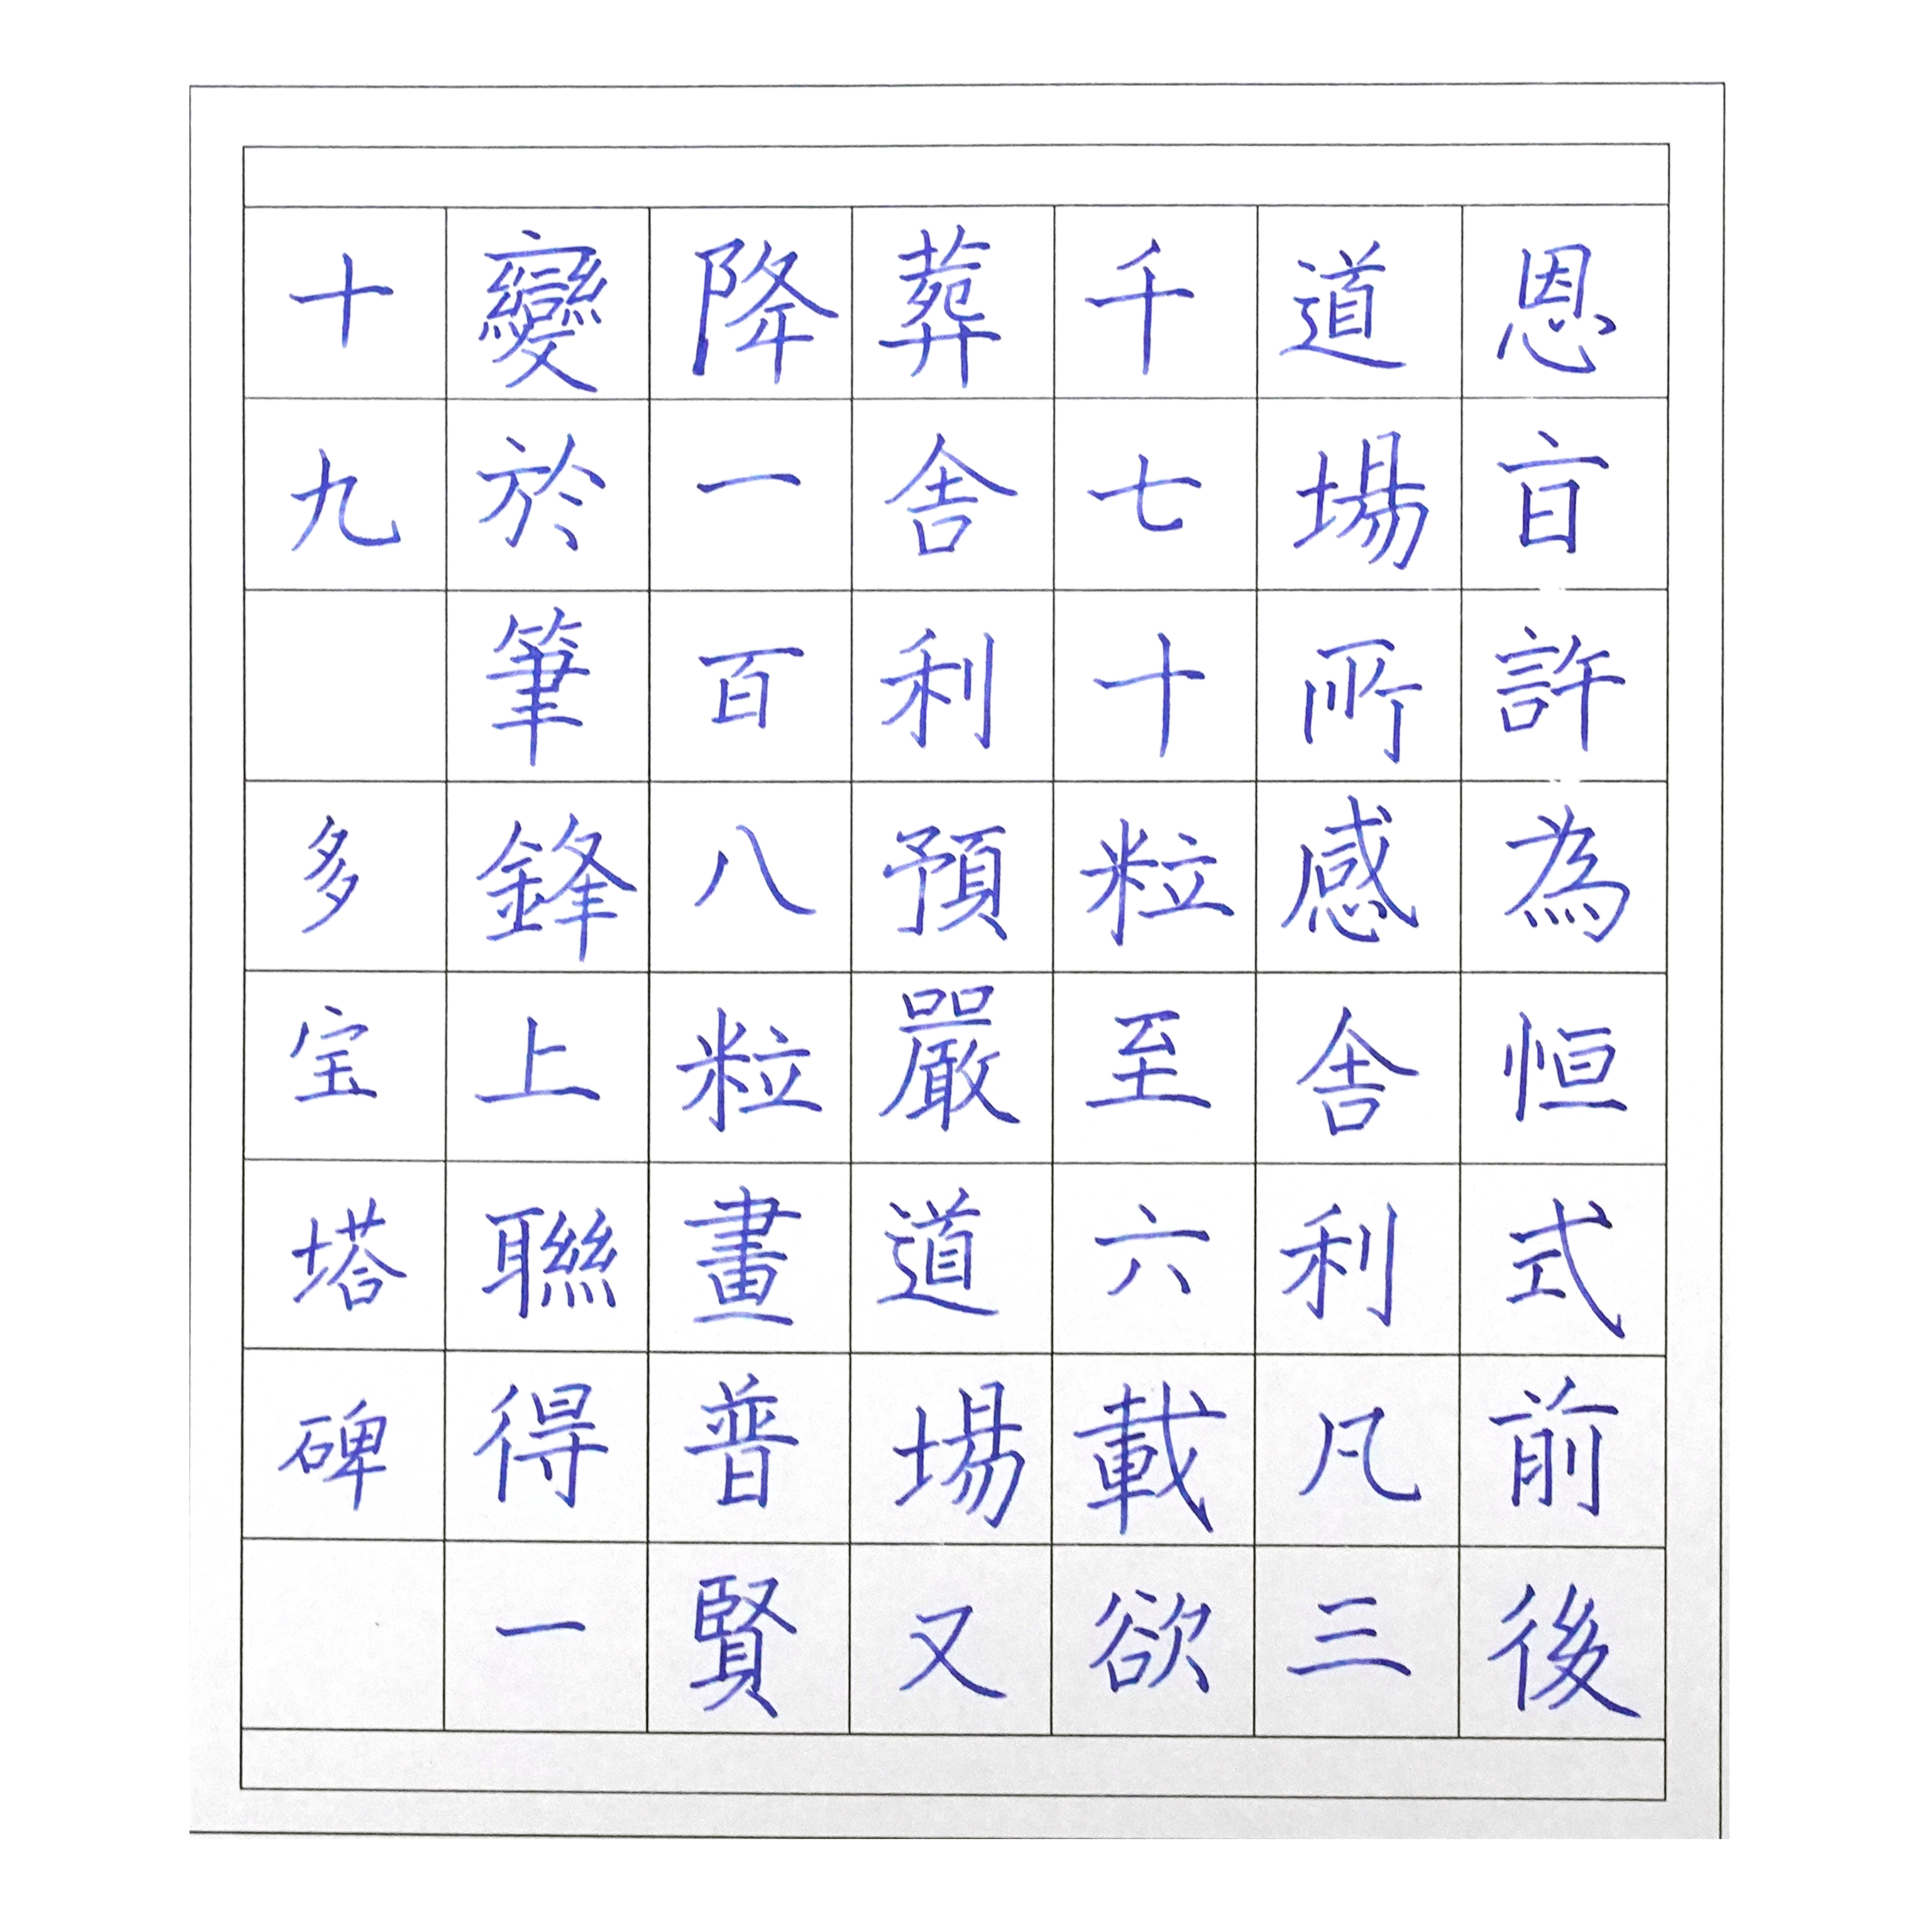 恩旨許為恒式前後
道場所感舍利凡三
千七十粒至六載欲
葬舍利預嚴道場又
降一百八粒畫普賢
變於筆鋒上聯得一
十九 多宝塔碑